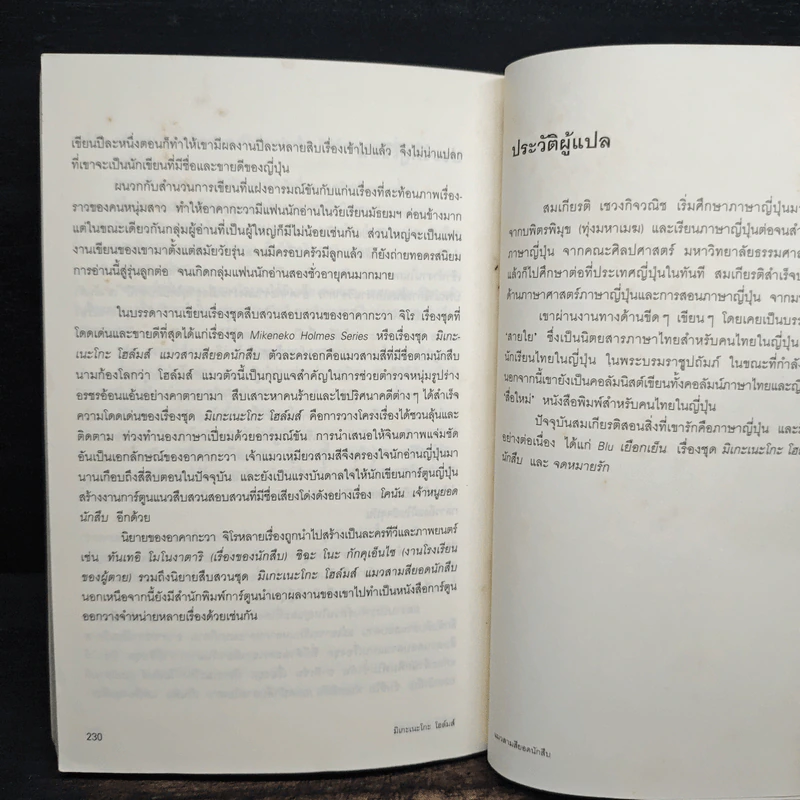 เขียนปีละหนึ่งตอนก็ทำให้เขามีผลงานปีละหลายสิบเรื่องเข้าไปแล้ว จึงไม่น่าแปลก
ที่เขาจะเป็นนักเขียนที่มีชื่อและขายดีของญี่ปุ่น
ผนวกกับสำนวนการเขียนที่แฝงอารมณ์ขันกับแก่นเรื่องที่สะท้อนภาพเรื่อง-
ราวของคนหนุ่มสาว ทำให้อาคากะวามีแฟนนักอ่านในวัยเรียนมัธยมฯ ค่อนข้างมาก
แต่ในขณะเดียวกันกลุ่มผู้อ่านที่เป็นผู้ใหญ่ก็มีไม่น้อยเช่นกัน ส่วนใหญ่จะเป็นแฟน
งานเขียนของเขามาตั้งแต่สมัยวัยรุ่น จนมีครอบครัวมีลูกแล้ว ก็ยังถ่ายทอดรสนิยม
การอ่านนี้สู่รุ่นลูกต่อ จนเกิดกลุ่มแฟนนักอ่านสองชั่วอายุคนมากมาย
ในบรรดางานเขียนเรื่องชุดสืบสวนสอบสวนของอาคากะวา จิโร เรื่องชุดที่
โดดเด่นและขายดีที่สุดได้แก่เรื่องชุด Mikeneko Holmes Series หรือเรื่องชุด มิเกะ-
เนะโกะ โฮล์มส์ แมวสามสียอดนักสืบ ตัวละครเอกคือแมวสามสีที่มีชื่อตามนักสืบ
นามก้องโลกว่า โฮล์มส์ แมวตัวนี้เป็นกุญแจสำคัญในการช่วยตำรวจหนุ่มรูปร่าง
อรชรอ้อนแอ้นอย่างคาตายามา สืบเสาะหาคนร้ายและไขปริศนาคดีต่างๆ ได้สำเร็จ
ความโดดเด่นของเรื่องชุด มิเกะเนะโกะ โฮล์มส์ คือการวางโครงเรื่องได้ชวนลุ้นและ
ติดตาม ท่วงทำนองภาษาเปี่ยมด้วยอารมณ์ขัน การนำเสนอให้จินตภาพแจ่มชัด
อันเป็นเอกลักษณ์ของอาคากะวา เจ้าแมวเหมียวสามสีจึงครองใจนักอ่านญี่ปุ่นมา
นานเกือบถึงสี่สิบตอนในปัจจุบัน และยังเป็นแรงบันดาลใจให้นักเขียนการ์ตูนญี่ปุ่น
สร้างงานการ์ตูนแนวสืบสวนสอบสวนที่มีชื่อเสียงโด่งดังอย่างเรื่อง โคนัน เจ้าหนูยอด
นักสืบ อีกด้วย
นิยายของอาคากะวา จิโรหลายเรื่องถูกนำไปสร้างเป็นละครทีวีและภาพยนตร์
เช่น ทันเทอิ โมโนงาตาริ (เรื่องของนักสืบ) ชิฉะ โนะ กักคุเอ็นไซ (งานโรงเรียน
ของผู้ตาย) รวมถึงนิยายสืบสวนชุด มิเกะเนะโกะ โฮล์มส์ แมวสามสียอดนักสืบ
นอกเหนือจากนี้ยังมีสำนักพิมพ์การ์ตูนนำเอาผลงานของเขาไปทำเป็นหนังสือการ์ตูน
ออกวางจำหน่ายหลายเรื่องด้วยเช่นกัน
230
มิเกะเนะโกะ โฮล์มส์
ประวัติผู้แปล
สมเกียรติ เชวงกิจวณิช เริ่มศึกษาภาษาญี่ปุ่นมา
จากบพิตรพิมุข (ทุ่งมหาเมฆ) และเรียนภาษาญี่ปุ่นต่อจนสำ
ภาษาญี่ปุ่น จากคณะศิลปศาสตร์ มหาวิทยาลัยธรรมศา
แล้วก็ไปศึกษาต่อที่ประเทศญี่ปุ่นในทันที สมเกียรติสำเร็จ
ด้านภาษาศาสตร์ภาษาญี่ปุ่นและการสอนภาษาญี่ปุ่น จาก
เขาผ่านงานทางด้านขีดๆ เขียนๆ โดยเคยเป็นบรร
"สายใย" ซึ่งเป็นนิตยสารภาษาไทยสำหรับคนไทยในญี่ปุ่น
นักเรียนไทยในญี่ปุ่น ในพระบรมราชูปถัมภ์ ในขณะที่กำลัง
นอกจากนี้เขายังเป็นคอลัมนิสต์เขียนทั้งคอลัมน์ภาษาไทยและญี่
"สื่อใหม่" หนังสือพิมพ์สำหรับคนไทยในญี่ปุ่น
ปัจจุบันสมเกียรติสอนสิ่งที่เขารักคือภาษาญี่ปุ่น และ
อย่างต่อเนื่อง ได้แก่ Blu เยือกเย็น เรื่องชุด มิเกะเนะโกะ โฮล
นักสืบ และ จดหมายรัก
แมวสามสียอดนักสืบ